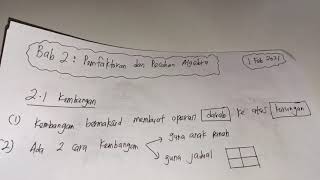 Bab 2 : Pemfaktoran dan Pecahan Algebra
1 Feb 2021
2.1 Kembangan
(1) Kembangan bermaksud membuat operasi darab ke atas kurungan
(2) Ada 2 cara kembangan
guna anak panah
guna jadual